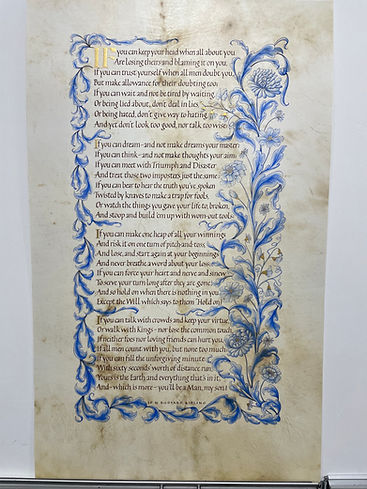 IF you can keep your head when all about you
Are losing theirs and blaming it on you,
If you can trust yourself when all men doubt you,
But make allowance for their doubting too:
If you can wait and not be tired by waiting,
Or being lied about, don't deal in lies,
Or being hated, don't give way to hating,
And yet don't look too good, nor talk too wise:
If you can dream - and not make dreams your master;
If you can think - and not make thoughts your aim;
If you can meet with Triumph and Disaster
And treat those two impostors just the same.
If you can bear to hear the truth you've spoken
Twisted by knaves to make a trap for fools,
Or watch the things you gave your life to, broken,
And stoop and build 'em up with worn-out tools:
If you can make one heap of all your winnings
And risk it on one turn of pitch-and-toss,
And lose, and start again at your beginnings
And never breathe a word about your loss:
If you can force your heart and nerve and sinew
To serve your turn long after they are gone,
And so hold on when there is nothing in you
Except the Will which says to them 'Hold on!'
If you can talk with crowds and keep your virtue,
Or walk with Kings - nor lose the common touch,
If neither foes nor loving friends can hurt you,
If all men count with you, but none too much:
If you can fill the unforgiving minute
With sixty seconds' worth of distance run,
Yours is the Earth and everything that's in it,
And - which is more - you'll be a Man, my son!
IF by RUDYARD KIPLING